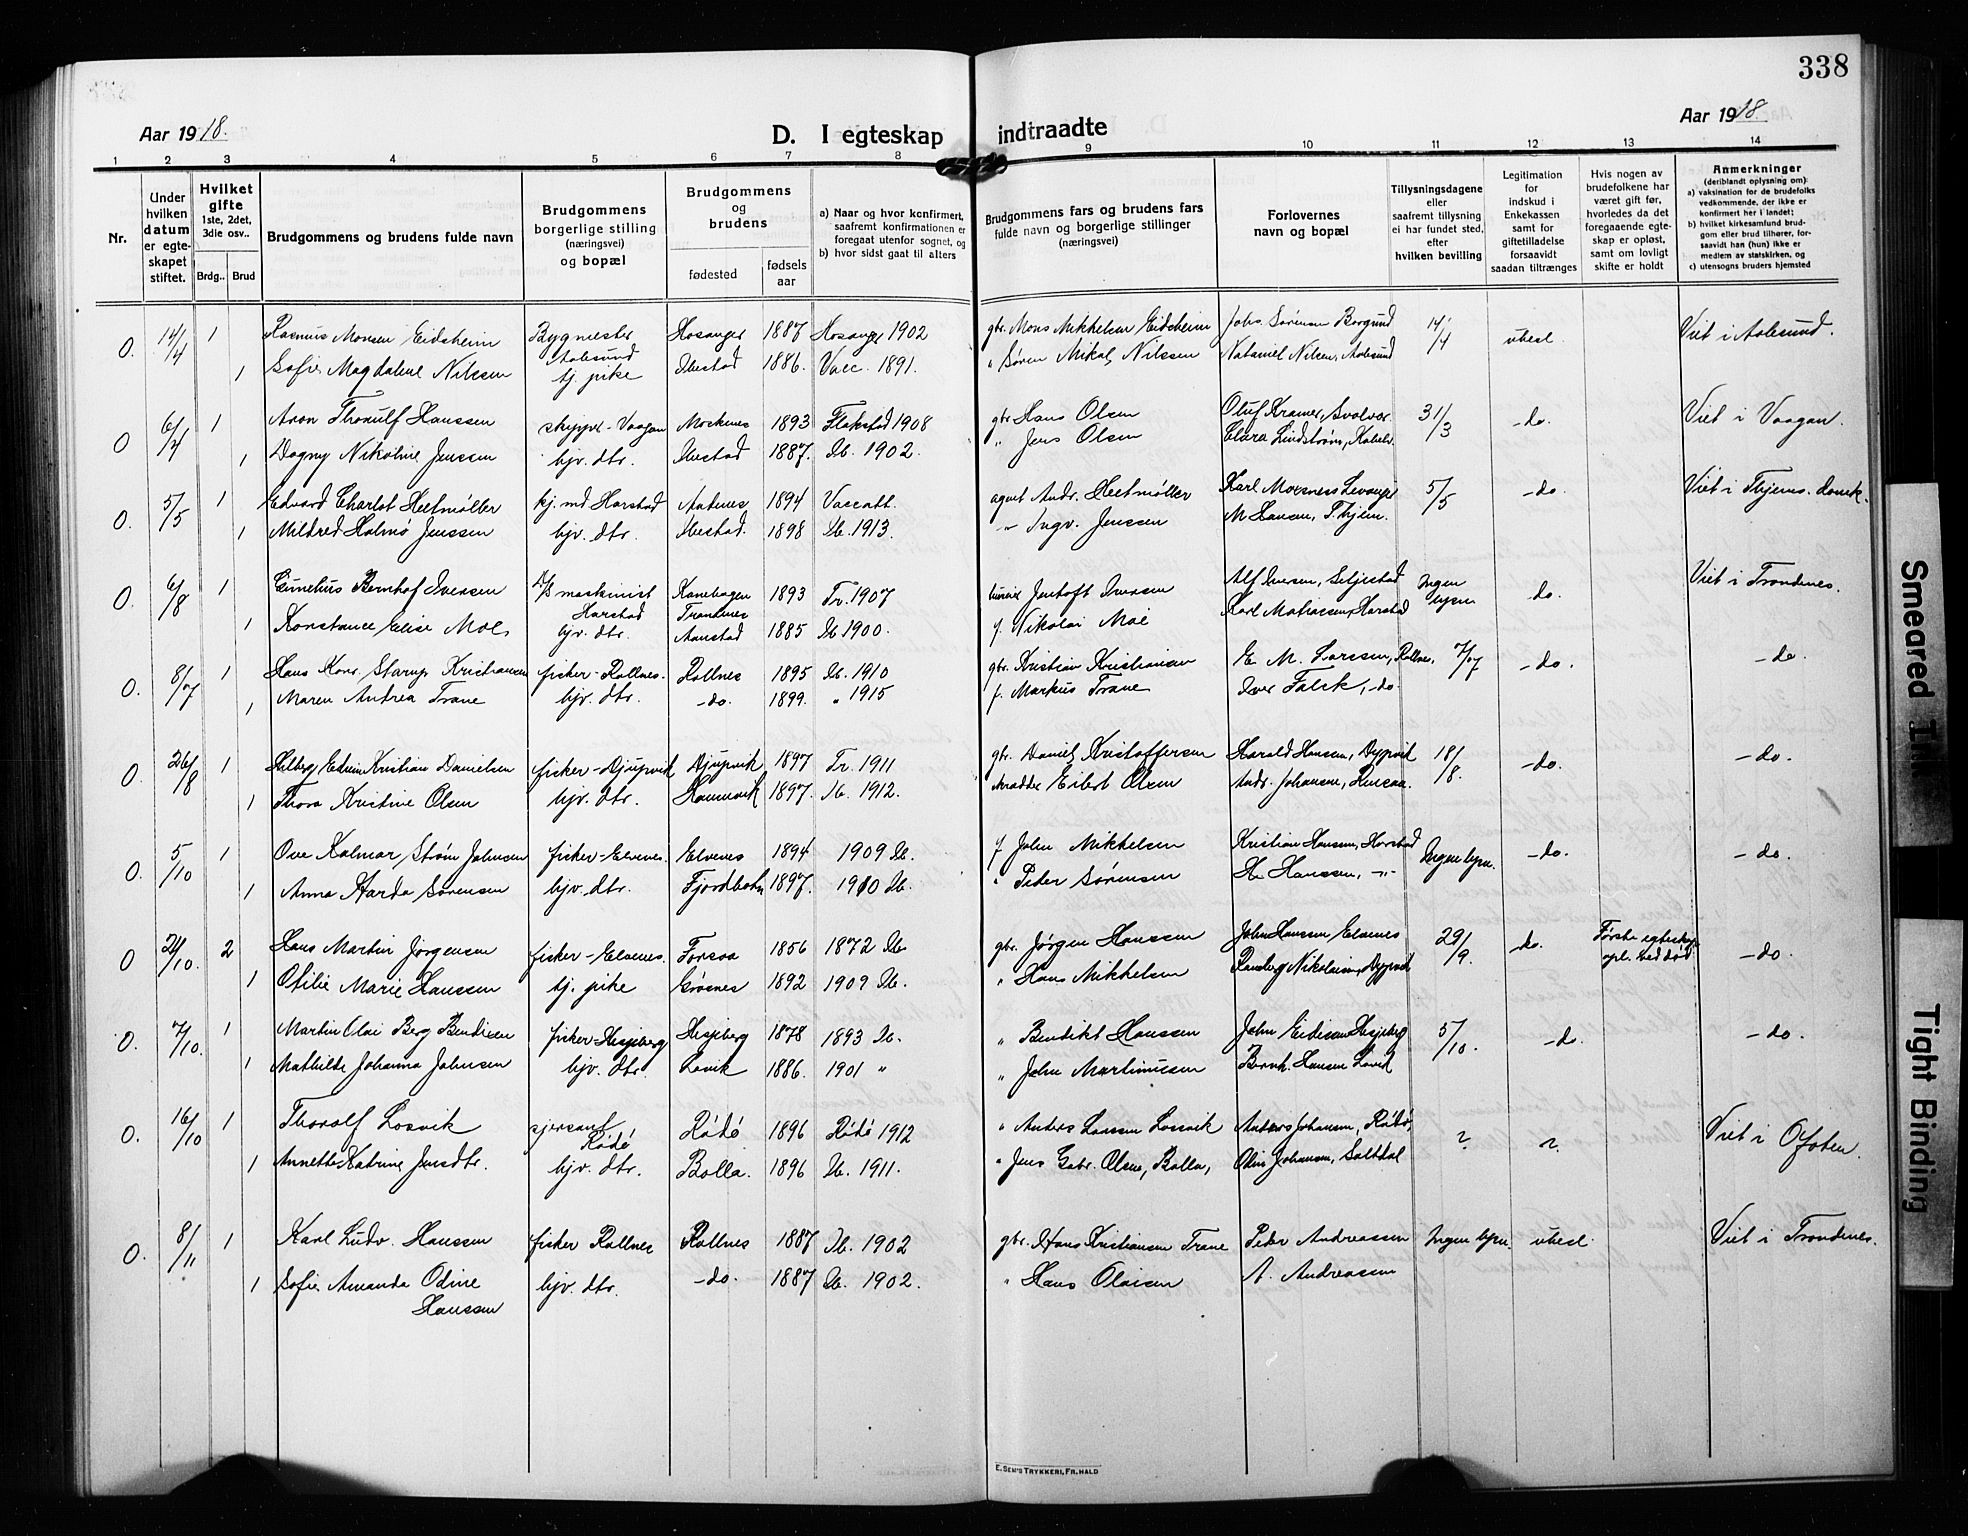 338
Aar 1918.
D. I egteskap indtraadte
Aar 1918.
1 2 3 4 5 6 7 8 9 10 11 12 13 14
Nr.
Under hvilken datum er egteskapet stiftet.
Hvilket gifte 1ste, 2det, 3die osv..
Brdg.. Brud
Brudgommens og brudens fulde navn
Brudgommens borgerlige stilling (næringsvei) og bopæl
Brudgommens og brudens
fødested
fødselsaar
a) Naar og hvor konfirmert, saafremt konfirmationen er foregaat utenfor sognet, og
b) hvor sidst gaat til alters
Brudgommens fars og brudens fars fulde navn og borgerlige stillinger (næringsvei)
Forlovernes navn og bopæl
Tillysningsdagene eller saafremt tillysning ei har fundet sted, efter hvilken bevilling
Legitimation for indskud i Enkekassen samt for giftetilladelse forsaavidt saadan tiltrænges
Hvis nogen av brudefolkene har været gift før, hvorledes da det foregaaende egteskap er opløst, samt om lovligt skifte er holdt
Anmerkninger (deriblandt oplysning om):
a) vaksination for de brudefolks vedkommende, der ikke er konfirmert her i landet;
b) hvilket kirkesamfund brudgom eller brud tilhører, forsaavidt han (hun) ikke er medlem av statskirken, og
c) utensogns bruders hjemsted
0. 14/4 1 Rasmus Monsen Eidsheim Bygmester Aalesund Hosanger 1887 Hosanger 1902 gbr. Mons Mikkelsen Eidsheim Johs. Sørensen Borgund 14/4 ubesl. Viet i Aalesund.
1 Sofie Magdalene Nilssen tj. pike Ibestad 1886. Vacc. 1891. " Søren Mikal Nilssen Nataniel Nilsen, Aalesund
0 6/4 1 Aron Thorulf Hanssen skipper-Vaagan Moskenes 1893 Flakstad 1908 gbr. Hans Olsen Oluf Kramer, Svolvær 31/3 -do. Viet i Vaagan.
1 Dagny Nikoline Jenssen hjv. dtr. Ibestad 1887. Ib. 1902. " Jens Olsen Clara Lindstrøm, Kabelv.
0. 5/5 1 Edvard Charlot Heitmøller kj. md Harstad 1894 agent Andr. Heitmøller Karl 5/5 -do. Viet i
1 Mildred Holmø Jenssen hjv. dtr. Ibestad. 1898 Ib. 1913. " Ingv. Jenssen M Hansen,
0. 6/8 1 Bernhof Iversen D/S maskinist Harstad Kanebogen Trondenes 1893 Tr. 1907 Jentoft Iversen Alf Iversen, Seljestad Ingen lysn. do. Viet i Trondenes.
1 Konstance Elise Moe hjv. dtr. Aanstad 1885 Ib 1900. f. Nikolai Moe Karl Mathiassen, Harstad
0. 8/07 1 Hans Konr. Starup Kristiansen fisker-Rollnes. Rollnes 1895 Ib. 1910 gbr. Kristian Kristiansen E. M. Larssen, Rollnes. 7/07 -do. -do.
1 Maren Andrea Trane hjv. dtr. -do. 1899. " 1915 f. Markus Trane Iver Falck, -do.
0. 26/8 1 Hilberg Edvin Kristian Danielsen fisker-Djupvik Djupvik 1897 Tr. 1911 gbr. Daniel Kristoffersen Harald Hansen, Dypvik 18/8. -do. -do.
1 Thora Kristine Olsen hjv. dtr. Hamnvik 1897. Ib. 1912. Eilert Olsen Andr. Johansen, Rensaa.
0. 5/10 1 Ove Kalmar Strøm Johnsen fisker-Elvenes. Elvenes 1894 1909 Ib. f John Mikkelsen Kristian Hansen, Harstad Ingen lysn. -do. -do.
1 Anna Harda Sørensen hjv. dtr. Fjordbotn 1897. 1910 Ib. " Peder Sørensen H. Hanssen, -"-
0 2/10. 2 Hans Martin Jørgensen fisker-Elvenes. Forsaa 1856 1872 Ib gbr. Jørgen Hanssen John Hanssen Elvenes 29/9. do. Første egteskap opl. ved død -do.
1 Otilie Marie Hanssen tj. pike Grøsnes 1892 1909 Ib. " Hans Mikkelsen Nikolaisen, Dypvik
0. 7/10. 1 Martin Olai Berg Bendixen fisker-Hesjeberg Hesjeberg 1878 1893 Ib. " Bendikt Hanssen John Hesjeberg 5/10. -do. -do.
1 Mathilde Johanna Johnsen hjv. dtr. Lavik 1886. 1901 " " John Martinussen Bernh. Hansen Lavik
0. 16/10 1 Thoralf Losvik sjersant Rödö Rödö 1896 Rödö 1912 " Anders Larssen Losvik Anders Johansen, Rödö, ? ? Viet i Ofoten.
1 Annette Katrine Jensdtr. hjv. dtr. Bolla. 1896 Ib. 1911. " Jens Gabr. Olsen, Bolla, Odin Johansen, Saltdal
0. 8/11 1 Karl Ludv. Hanssen fisker Rollnes Rollnes 1887 Ib. 1902 gbr. Hans Kristiansen Trane Peder Andreassen Ingen lysn. ubesl. Viet i Trondenes.
1 Sofie Amanda Odine Hanssen hjv. dtr. -do. 1887 Ib. 1902. " Hans Olaisen A. Andreassen
E. SEM'S TRYKKERI, FR.HALD
Smeared Ink
Tight Binding